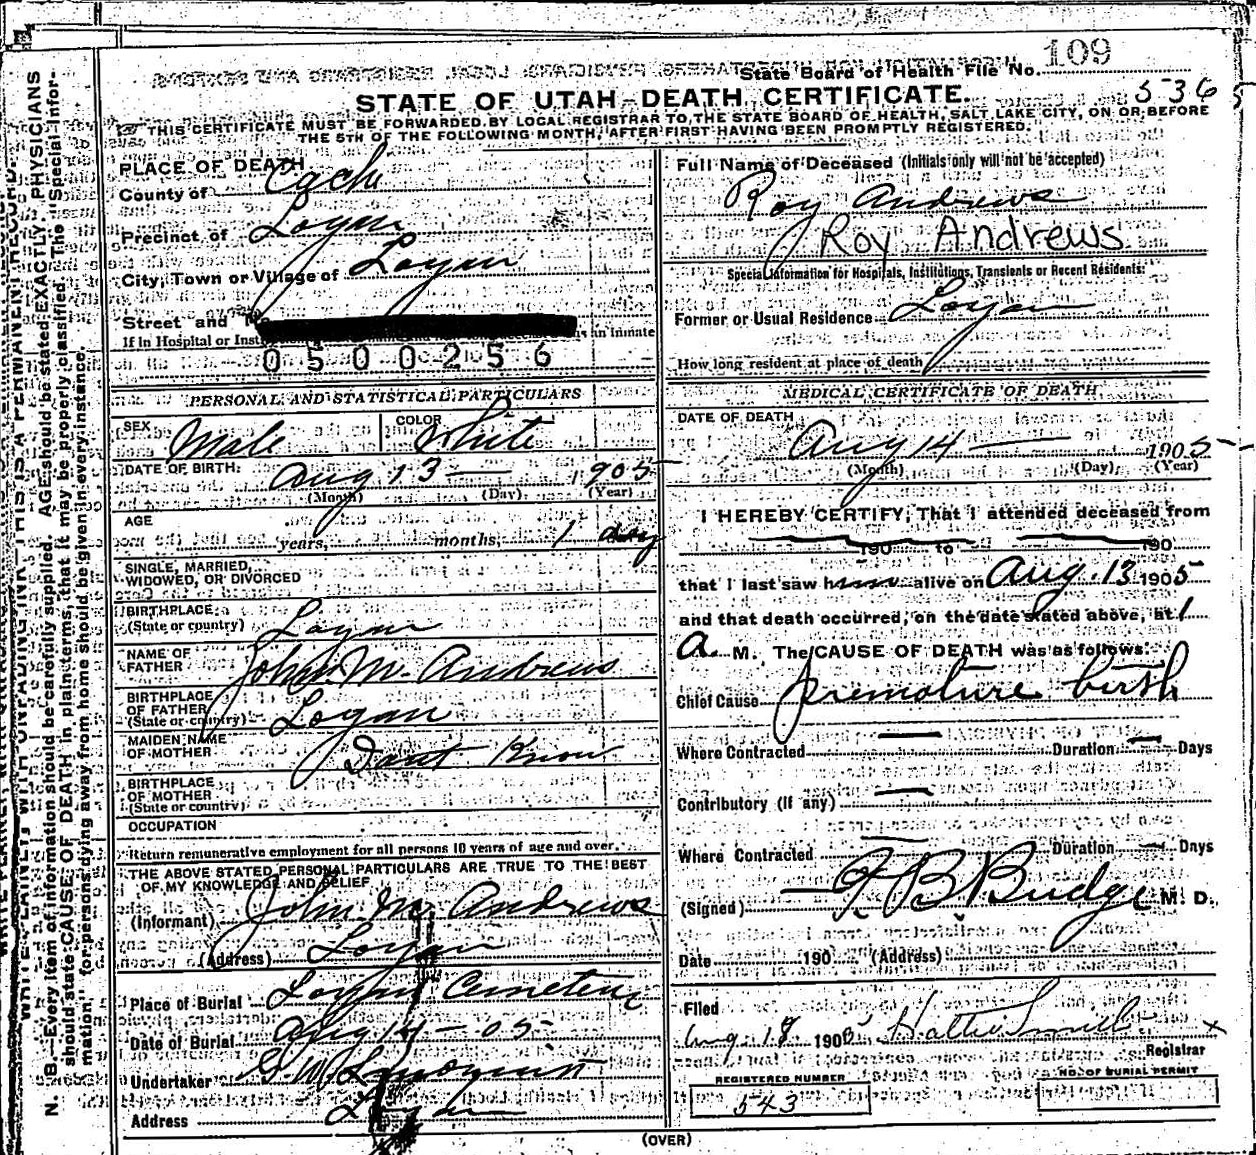 State Board of Health File No. 109
536
STATE OF UTAH—DEATH CERTIFICATE.
THIS CERTIFICATE MUST BE FORWARDED BY LOCAL REGISTRAR TO THE STATE BOARD OF HEALTH, SALT LAKE CITY, ON OR BEFORE
THE 5TH OF THE FOLLOWING MONTH, AFTER FIRST HAVING BEEN PROMPTLY REGISTERED.
PLACE OF DEATH.
County of Cache
Precinct of Logan
City, Town or Village of Logan
Street and
If in Hospital or is an Inmate
0500256
PERSONAL AND STATISTICAL PARTICULARS
SEX Male COLOR White
DATE OF BIRTH: Aug 13 — 1905
(Month) (Day) (Year)
AGE
years, months, 1 day
SINGLE, MARRIED,
WIDOWED, OR DIVORCED
BIRTHPLACE
(State or country) Logan
NAME OF
FATHER John M. Andrews
BIRTHPLACE
OF FATHER
(State or country) Logan
MAIDEN NAME
OF MOTHER Dont Know
BIRTHPLACE
OF MOTHER
(State or country)
OCCUPATION
Return remunerative employment for all persons 10 years of age and over.
THE ABOVE STATED PERSONAL PARTICULARS ARE TRUE TO THE BEST
OF MY KNOWLEDGE AND BELIEF
(Informant) John M. Andrews
(Address) Logan
Place of Burial Logan Cemetery
Date of Burial Aug 14 - 05
Undertaker
Address Logan
Full Name of Deceased (Initials only will not be accepted)
Roy Andrews
Roy Andrews
Special Information for Hospitals, Institutions, Transients or Recent Residents:
Former or Usual Residence Logan
How long resident at place of death
MEDICAL CERTIFICATE OF DEATH
DATE OF DEATH
Aug 14 — 1905
(Month) (Day) (Year)
I HEREBY CERTIFY, That I attended deceased from
190 to 190
that I last saw him alive on Aug. 13 1905
and that death occurred, on the date stated above, at 1
a. M. The CAUSE OF DEATH was as follows:
Chief Cause premature birth
Where Contracted — Duration — Days
Contributory (If any) —
Where Contracted — Duration — Days
(Signed) B Budge M. D.
Date 190 (Address)
Filed
Aug. 18 1905 Hattie Smith x
Registrar
REGISTERED NUMBER
543
NO. OF BURIAL PERMIT
(OVER)
WRITE PLAINLY, WITH UNFADING INK—THIS IS A PERMANENT RECORD.
N. B.—Every item of information should be carefully supplied. AGE should be stated EXACTLY. PHYSICIANS
should state CAUSE OF DEATH in plain terms, that it may be properly classified. The "Special Infor-
mation" for persons dying away from home should be given in every instance.